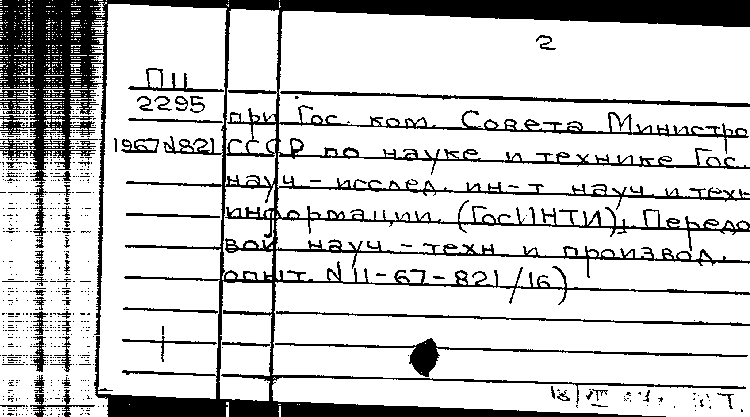 2
П11
2295
при Гос. ком. Совета Министро
1967 N821 СССР по науке и технике Гос.
науч-исслед. ин-т науч и техн
информации (ГосИНТИ), Передо
вой науч-техн и производ.
опыт. N 11-67-821/16)